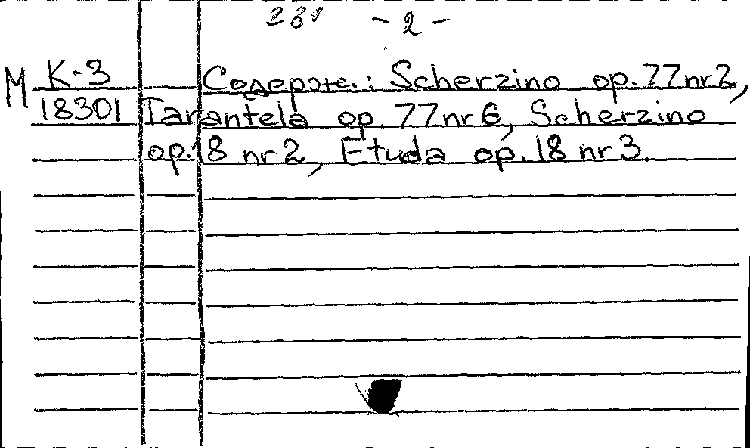 231 - 2 -
М К-3 Содерж.: Scherzino op.77 nr2,
18301 Tarantela op. 77 nr 6, Scherzino
op.18 nr 2, Etuda op.18 nr 3.